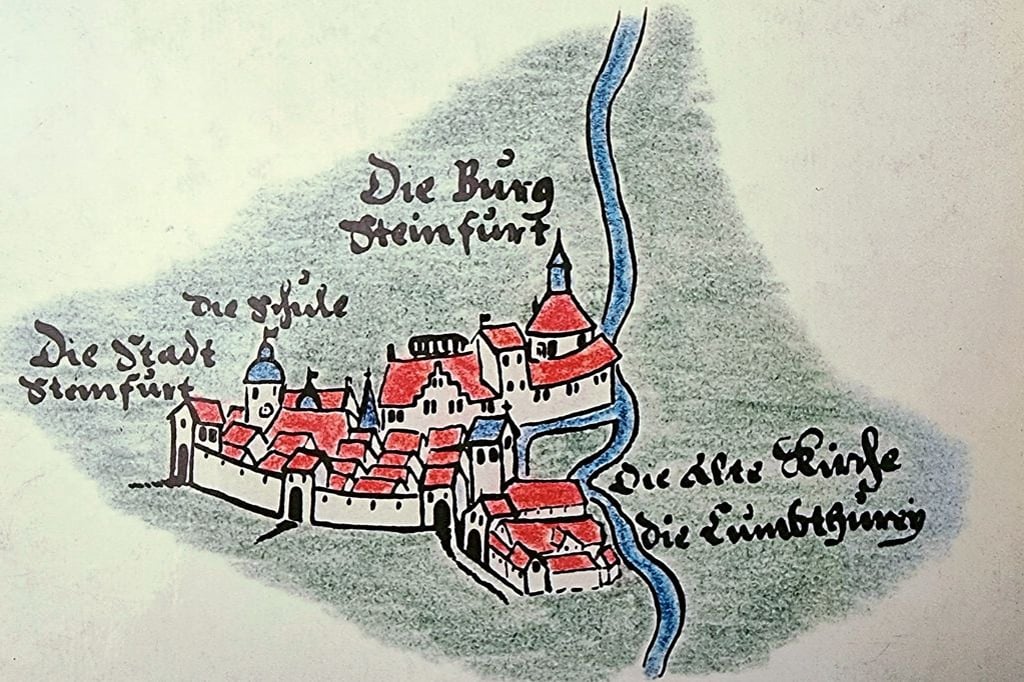 Die Burg
Steinfurt
die Schule
Die Stadt
Steinfurt
Die alte Kirche
die